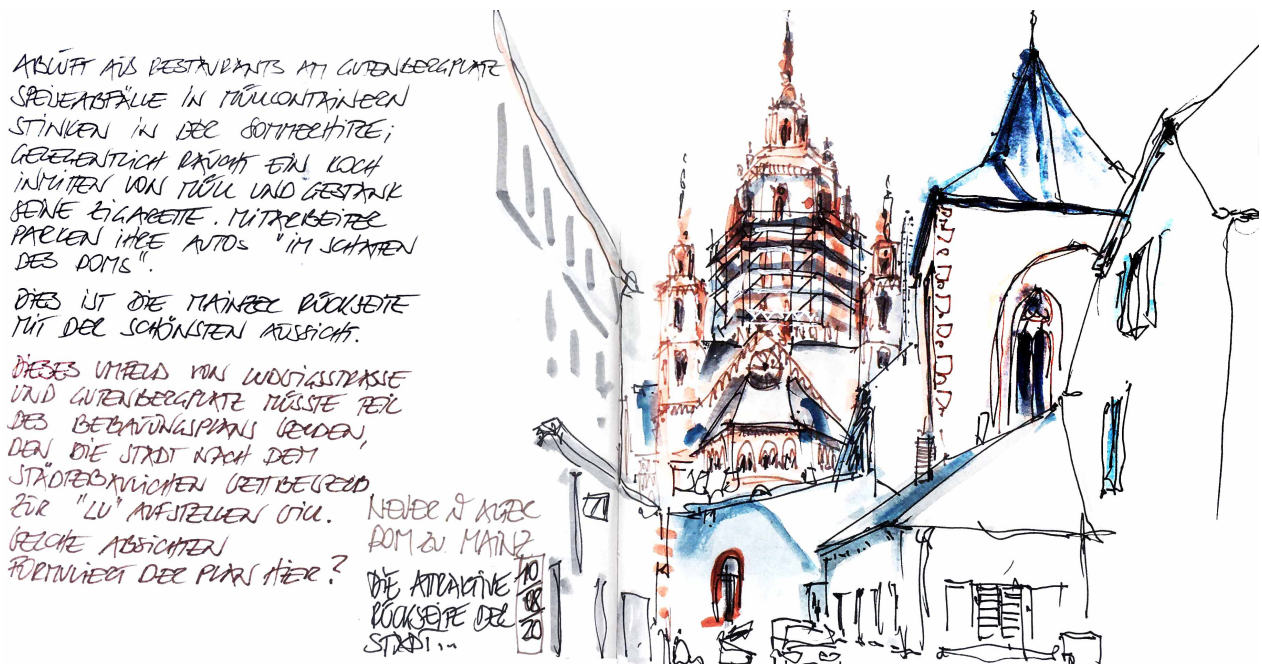 ABLUFT AUS RESTAURANTS AM GUTENBERGPLATZ
SPEISEABFÄLLE IN MÜLLCONTAINERN
STINKEN IN DER SOMMERHITZE;
GELEGENTLICH RAUCHT EIN KOCH
INMITTEN VON MÜLL UND GESTANK
SEINE ZIGARETTE. MITARBEITER
PARKEN IHRE AUTOS "IM SCHATTEN
DES DOMS".
DIES IST DIE MAINZER RÜCKSEITE
MIT DER SCHÖNSTEN AUSSICHT.
DIESES UMFELD VON LUDWIGSSTRASSE
UND GUTENBERGPLATZ MÜSSTE TEIL
DES BEBAUUNGSPLANS WERDEN,
DEN DIE STADT NACH DEM
STÄDTEBAULICHEN WETTBEWERB
ZUR "LU" AUFSTELLEN WILL.
WELCHE ABSICHTEN
FORMULIERT DER PLAN HIER?
NEUER & ALTER
DOM ZU MAINZ
DIE ATTRAKTIVE
RÜCKSEITE DER
STADT...
10
08
20